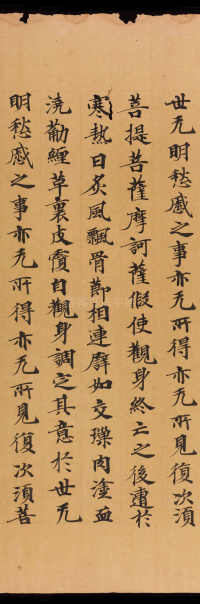 世无明愁慼之事亦无所得亦无所見復次須
菩提菩薩摩訶薩假使觀身終亡之後遭於
寒熱日炙風飄骨節相連譬如交璅肉塗血
澆筋纏草裹皮覆自觀身調定其意於世无
明愁慼之事亦无所得亦无所見復次須菩